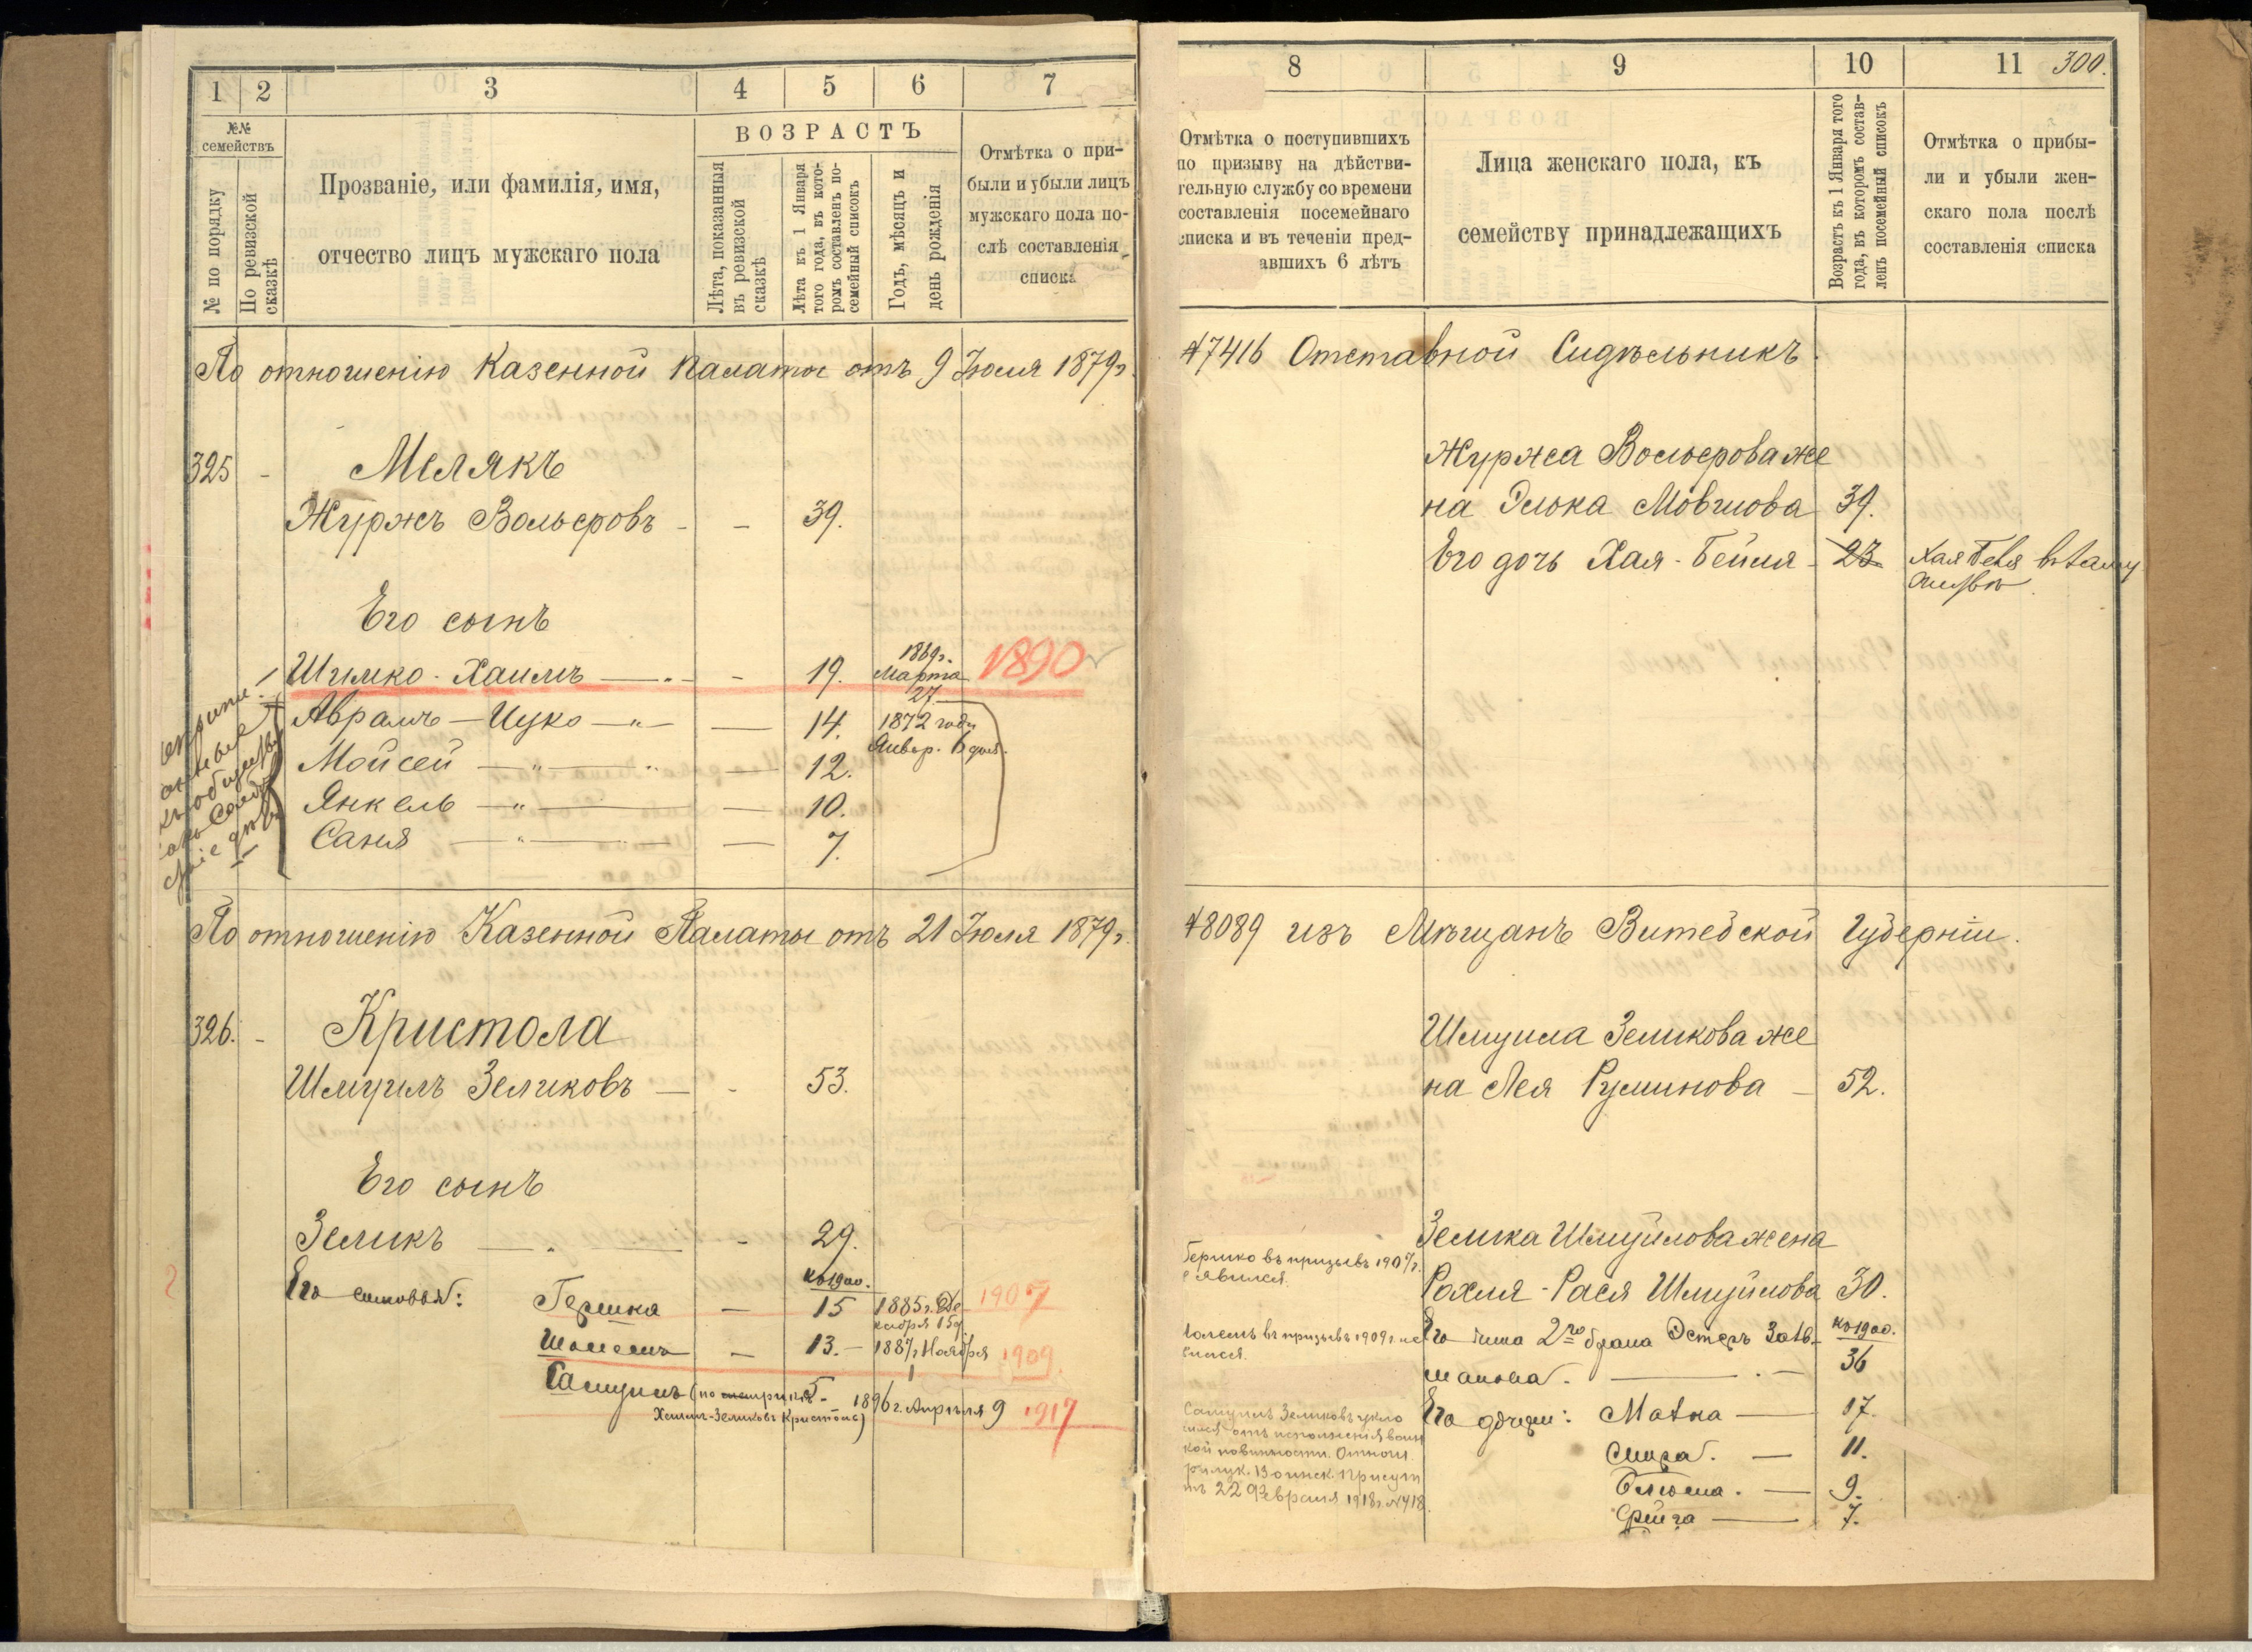 1 2 3 4 5 6 7
№№ семействъ
№ по порядку
По ревизской сказкѣ
Прозваніе, или фамилія, имя,
отчество лицъ мужскаго пола
ВОЗРАСТЪ
Лѣта, показанныя
въ ревизской
сказкѣ
Лѣта къ 1 Января
того года, въ кото-
ромъ составленъ по-
семейный списокъ
Годъ, мѣсяцъ и
день рожденія
Отмѣтка о при-
были и убыли лицъ
мужскаго пола по-
слѣ составленія
списка
По отношенію Казенной Палаты отъ 9 Іюля 1879г.
325 - Мелякъ
Журжъ Вольфровъ - - 39.
Его сынъ
Шимко-Хаимъ — - 19. 1869г. Марта 27. 1890
Абрамъ-Ицко — 14. 1872 года Январ. 6 дня.
Мойсей — 12.
Янкель — 10.
Саня — 7.
По отношенію Казенной Палаты отъ 21 Іюля 1879г.
326. - Кристола
Шмуилъ Зеликовъ — - 53.
Его сынъ
Зеликъ — - 29.
къ 1900.
Его сыновья: Гершка — 15 1885г. Де-
кабря 15д 1907
Шолемъ — 13. — 1887г Ноября 1 1909
Самуилъ (по метрикѣ 5. 1896г. Апрѣля 9 1917
Хаимъ-Зеликовъ Кристолъ)
8 9 10 11 300.
Отмѣтка о поступившихъ
по призыву на дѣйстви-
тельную службу со времени
составленія посемейнаго
списка и въ теченіи пред-
авшихъ 6 лѣтъ
Лица женскаго пола, къ
семейству принадлежащихъ
Возрастъ къ 1 Января того
года, въ которомъ состав-
ленъ посемейный списокъ
Отмѣтка о прибы-
ли и убыли жен-
скаго пола послѣ
составленія списка
№7416 Отставной Сидѣльникъ.
Журжа Вольфрова же
на Элька Мовшова 39.
Его дочь Хая-Бейля - 23 Хая Бейля
№8089 изъ Мѣщанъ Витебской Губерніи.
Шмуила Зеликова же
на Лея Руминова — 52.
Зелика Шмуйлова жена
Гершко въ призывъ 1907г.
явился.
Рохля-Рася Шмуйлова 30.
Шолемъ въ призывъ 1909г. не
явился.
Его жена 2го брака Эстеръ Зав- къ 1900.
манова. — 36
Самуилъ Зеликовъ укло
нился отъ исполненія воин
кой повинности. Отнош.
Воинск. Присут
22 Февраля 1918г. №418.
Его дочери: Матка — 17.
Мира. — 11.
Блюма. — 9.
Фейга — 7.